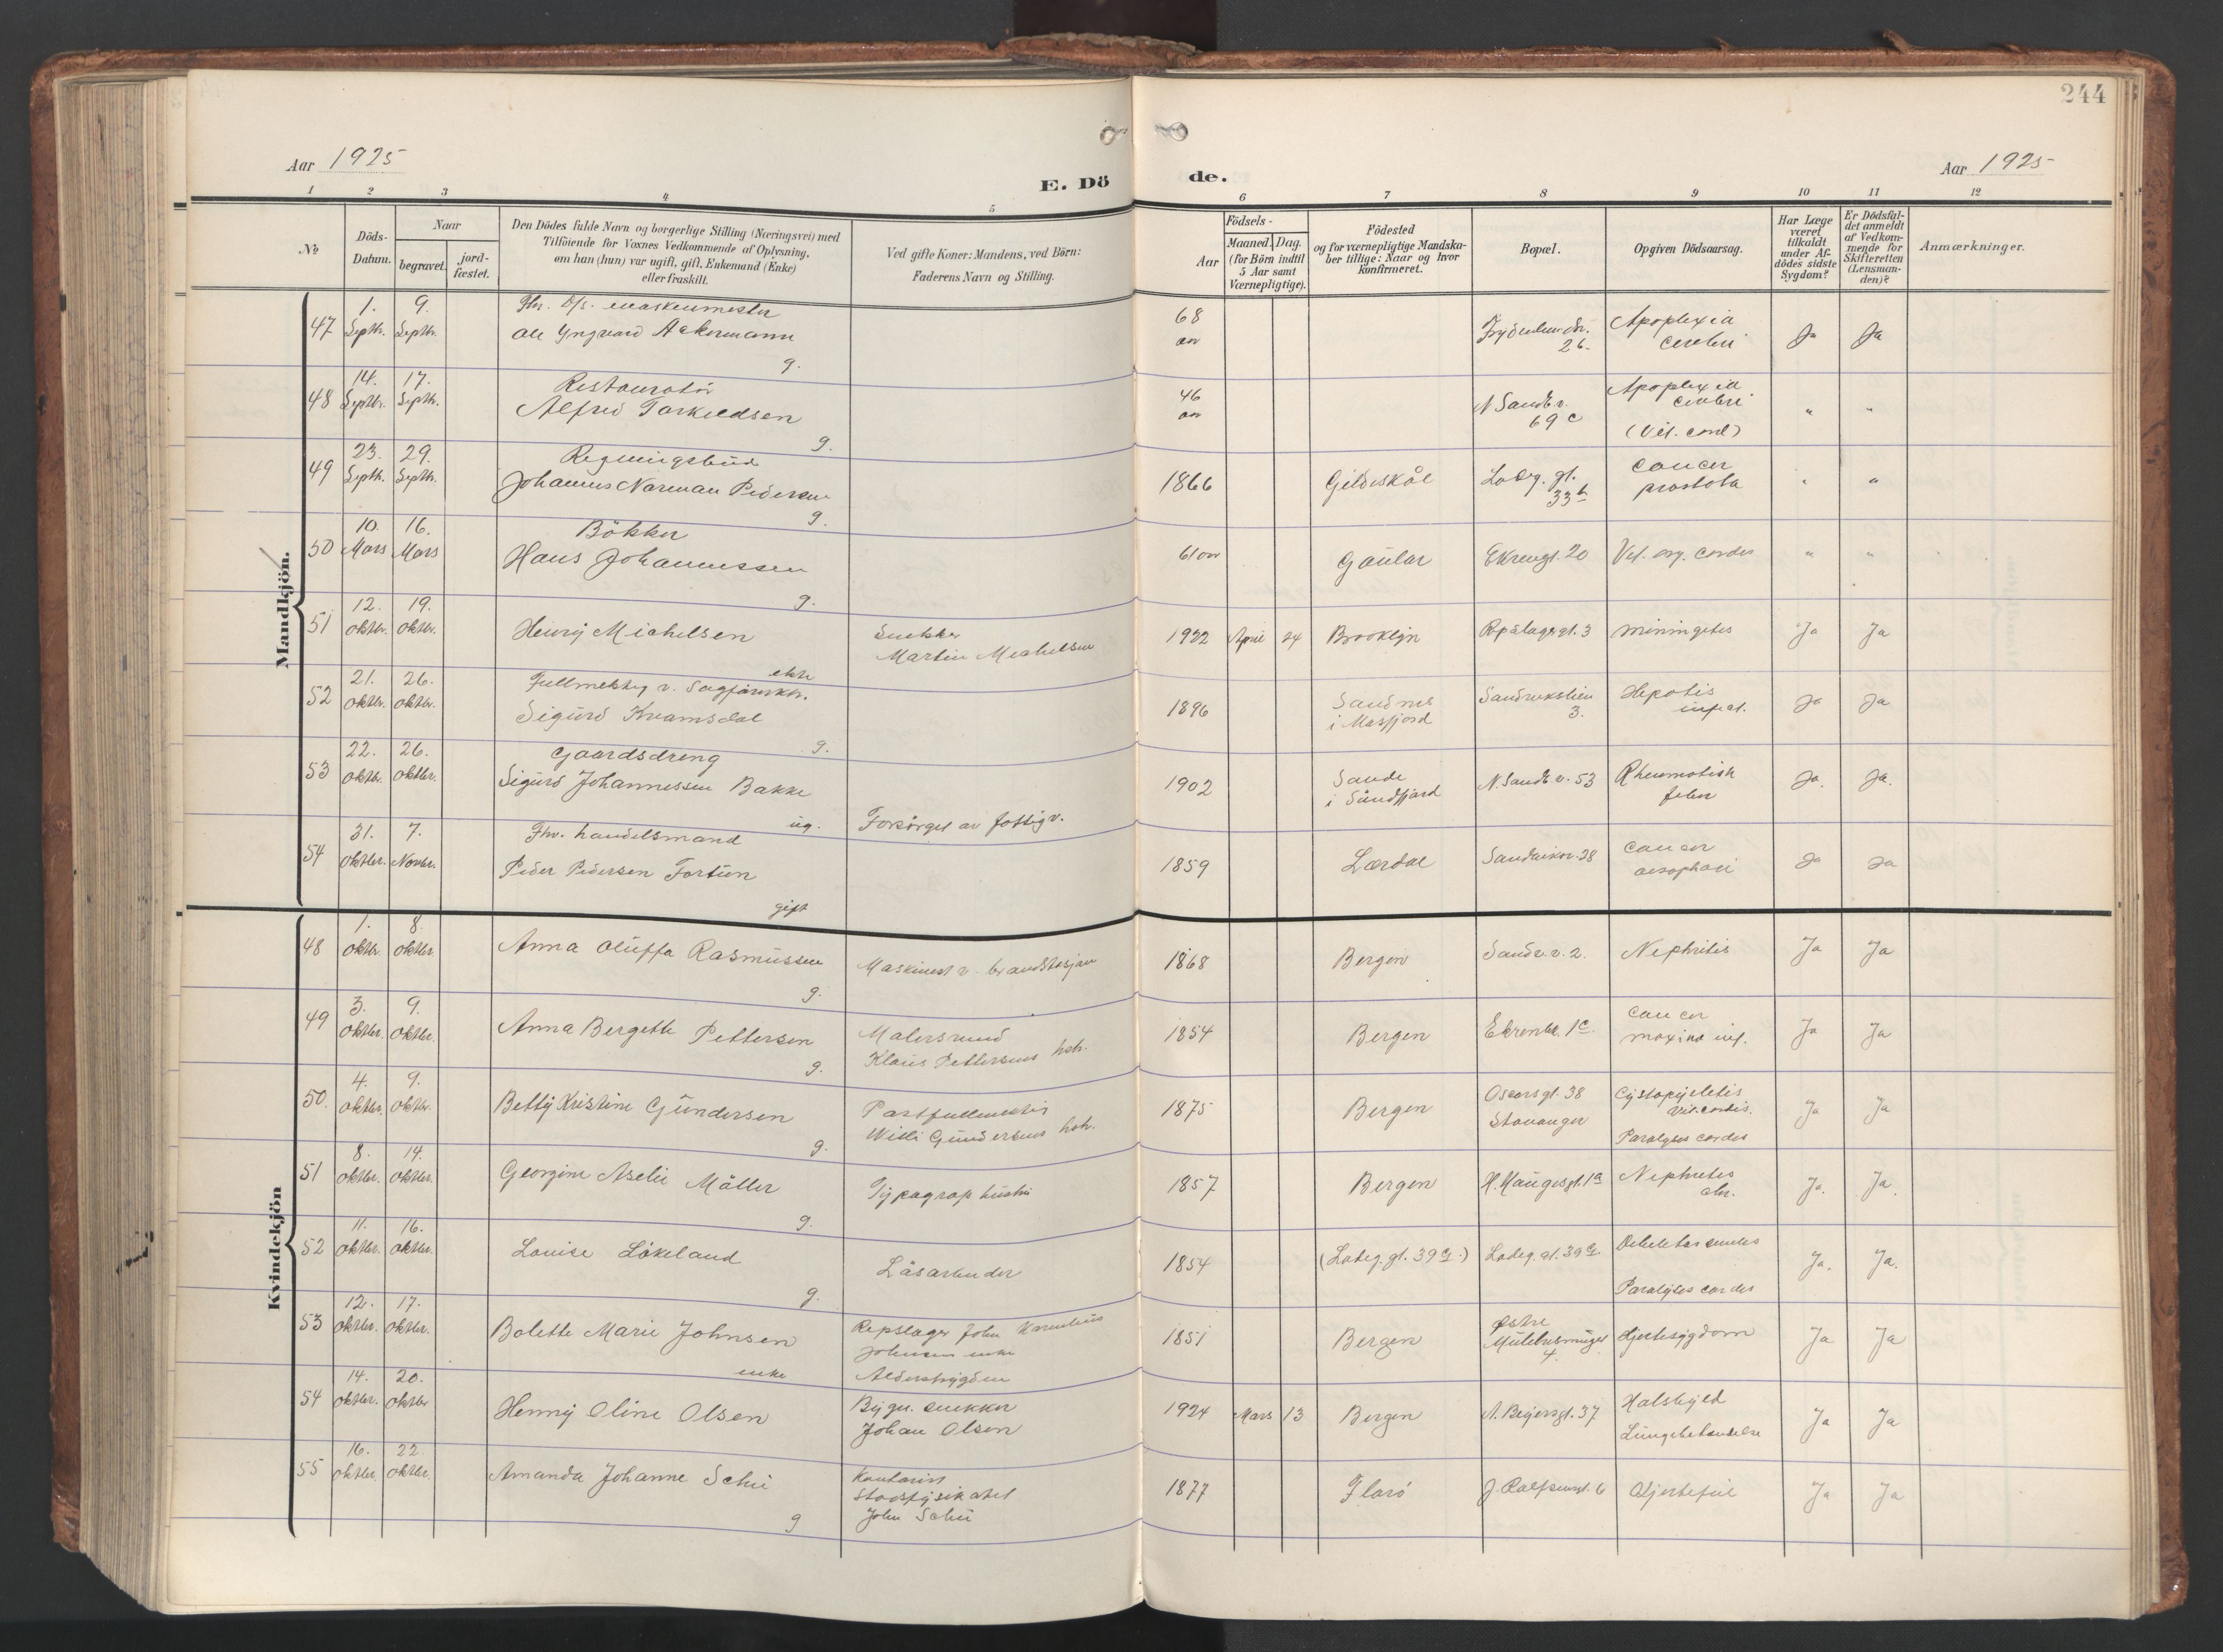 244
Aar 1925
Aar 1925
E. Dö
de.
1 2 3 4 5 6 7 8 9 10 11 12
№
Döds-
Datum.
Naar
begravet.
jord-
fæstet.
Den Dödes fulde Navn og borgerlige Stilling (Næringsvei) med
Tilföiende for Voxnes Vedkommende af Oplysning,
om han (hun) var ugift, gift, Enkemand (Enke)
eller fraskilt.
Ved gifte Koner: Mandens, ved Börn:
Faderens Navn og Stilling.
Födsels-
Aar
Maaned. Dag.
(for Börn indtil
5 Aar samt
Værnepligtige).
Födested
og for værnepligtige Mandska-
ber tillige: Naar og hvor
konfirmeret.
Bopæl.
Opgiven Dödsaarsag.
Har Læge
været
tilkaldt
under Af-
dödes sidste
Sygdom?
Er Dödsfal-
det anmeldt
af Vedkom-
mende for
Skifteretten
(Lensman-
den)?
Anmærkninger.
Mandkjön.
47 1. Septbr. 9. Septbr.
Ole Yngvard Ackermann
g.
68 aar
26. Apoplexia
cerebri Ja Ja
48 14. Septbr. 17. Septbr.
Restauratör
Alfred Torkildsen
g.
46 aar
N Sandv.
69 c
Apoplexia
cerebri
" "
49 23. Septbr. 29. Septbr.
Regningsbud
Johannes Norman Pedersen
g.
1866 Gildeskål Ladeg. gt.
33 b
cancer
prostata
" "
50 10. Mars 16. Mars
Bökker
Hans Johannessen
g.
61 aar Gaular Ekrengt. 20 Vit. org. cordis " "
51 12. oktbr. 19. oktbr.
Henry Michelsen
ekte
Snekker
Martin Michelsen
1922 April 24 Brooklyn Repslagergt. 3 miningites Ja Ja
52 21. oktbr. 26. oktbr.
Sigurd Kvamsdal
g.
1896 Sandnes
i Masfjord
3. Hepatis
Ja Ja
53 22. oktbr. 26. oktbr.
Gaardsdreng
Sigurd Johannessen Bakke
ug.
Forsörget av fattigv.
1902 Sande
i Sundfjord
N. Sandv. v. 53 Rheumatisk
feber
Ja. Ja.
54 31. oktbr. 7. Novbr.
Fhv. handelsmand
Peder Pedersen Fortun
gift
1859 Lærdal 28 cancer
Ja Ja
Kvindekjön
48 1. oktbr. 8. oktbr
Anna Oluffa Rasmussen
g.
Maskinist v. brandstasjon
1868 Bergen Sandv. v. 2. Nephritis Ja Ja
49 3. oktbr. 9. oktbr.
Anna Bergette Pettersen
g.
Malersvend
Klaus Pettersens hstr.
1854 Bergen Ekrenbk. 1 c. cancer
Ja Ja
50. 4. oktbr. 9. oktbr.
Betty Kristine Gundersen
g.
Postfullmektig
Willi Gundersens hstr.
1875 Bergen Oscarsgt. 38
Stavanger
Cystopyelitis
Paralyses cordis
Ja Ja
51 8. oktbr. 14. oktbr.
Georgine Aselie Möller
g.
Typograf hustru
1857 Bergen H. Haugesgt. 1 a Nephritis
chr.
Ja. Ja.
52 11. oktbr. 16. oktbr.
Louise Lökeland
g.
Låsarbeider
1854 (Ladeg. gt. 39 a.) Ladeg. gt. 39 a.
Paralyses cordis
Ja. Ja.
53 12. oktbr. 17. oktbr.
Bolette Marie Johnsen
enke
Repslager John Kornelius
Johnsens enke
Alderstrygden
1851 Bergen Östre
4.
Hjertesygdom Ja Ja
54 14. oktbr. 20. oktbr
Henny Oline Olsen
Bygn. snekker
Johan Olsen
1924 Mars 13 Bergen A. Beyersgt. 37 Halsbyld
Lungebetendelse
Ja Ja
55 16. oktbr. 22. oktbr.
Amanda Johanne Schie
g
Kontorist
Stadsfysikatet
John Schie
1877 Florö 6 Hjertefeil Ja Ja